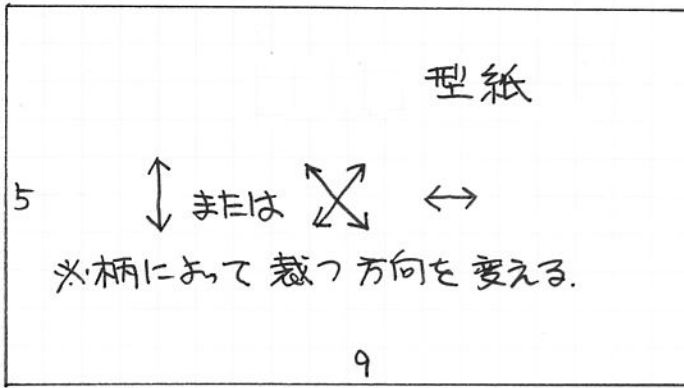 型紙
5 ↕ または ⤡⤢ ↔
※柄によって裁つ方向を変える.
9